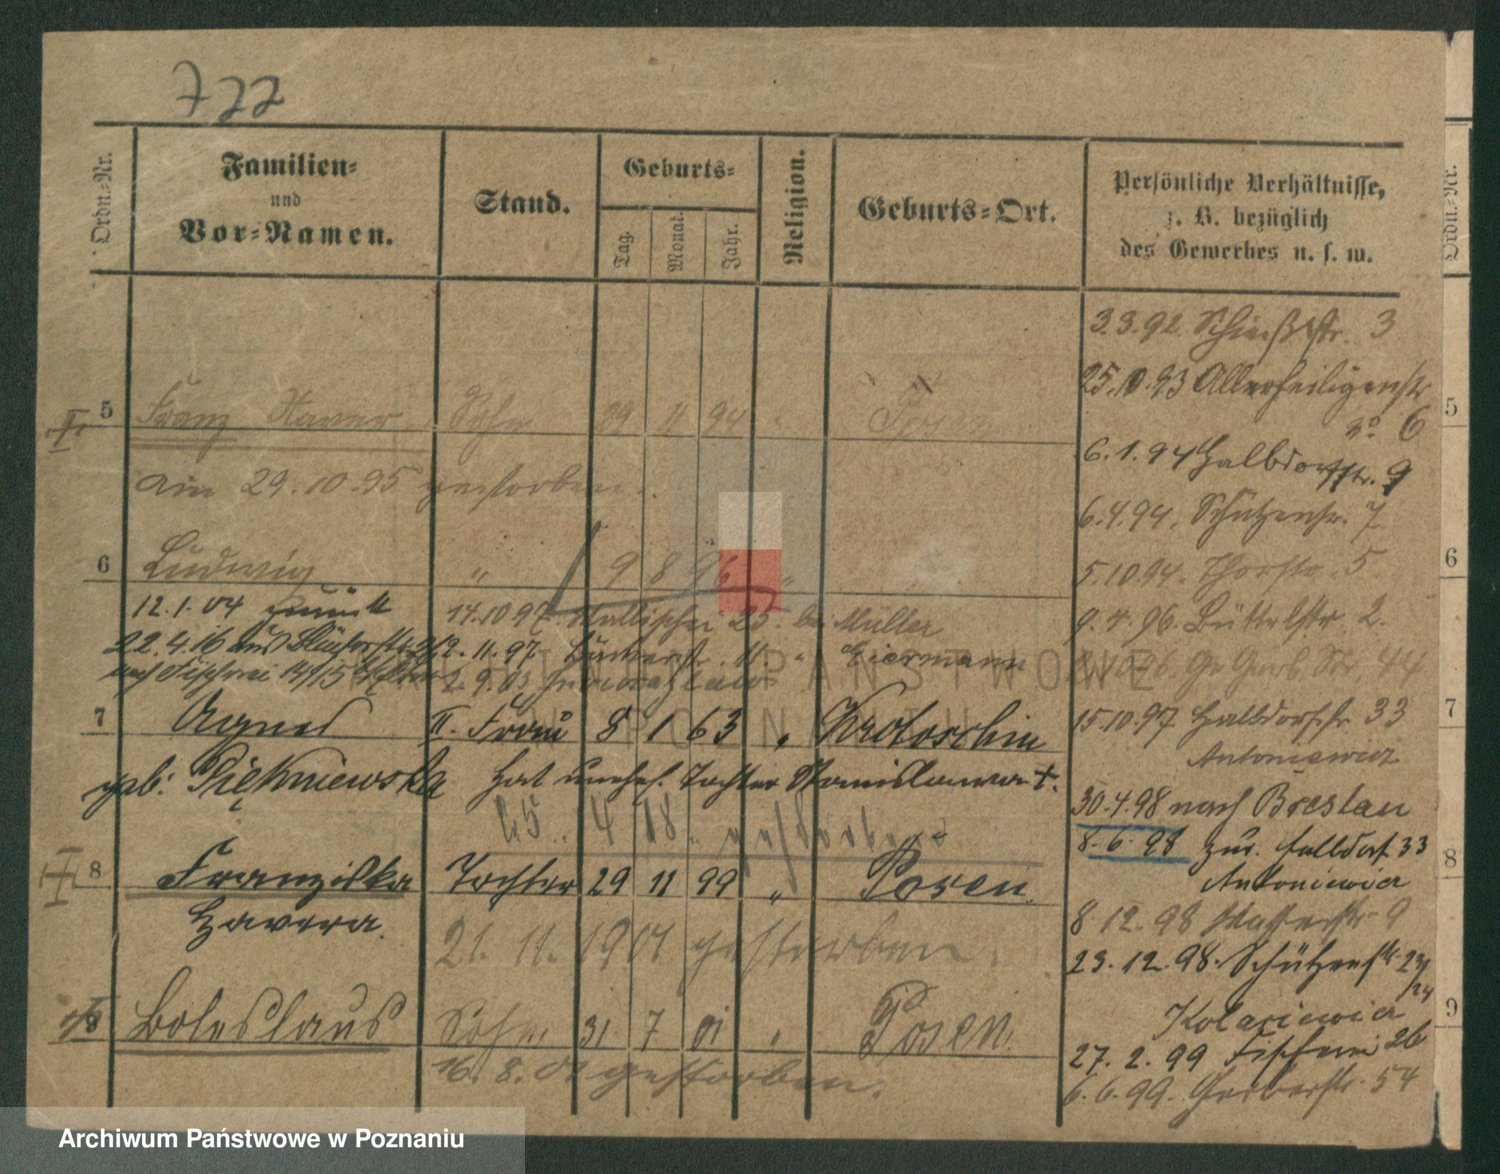 722
Ordn.-Nr.
Familien-
und
Vor-Namen.
Stand.
Geburts-
Tag.
Monat.
Jahr.
Religion.
Geburts-Ort.
Persönliche Verhältnisse,
z. B. bezüglich
des Gewerbes u. s. w.
Ordn.-Nr.
3.3.92. Schießstr. 3
25.10.93 Allerheiligenstr
No 6
5 Franz Xaver Sohn 29 11 94 " Posen
5
6.1.94 Halbdorfstr. 9
am 29.10.95 gestorben.
6.4.94. Schützenstr. 7
6 Ludwig " 9 8 96 "
6
5.10.94. Thorstr. 5
12.1.04 zurück
14.10.97 Wallischei 23. bei Müller
9.4.96. Büttelstr. 2.
22.4.16 aus
2.11.97 11. " Eiermann
Gr Gerb. Str. 44
nach Fischerei 14/15
2.9.03
ARCHIWUM PAŃSTWOWE
W POZNANIU
7 Agnes II. Frau 8 1 63 " Krotoschin
7
15.10.97 Halbdorfstr 33
Antoniewicz
geb: Piękniewska hat unehel. Tochter Stanislawa +.
30.4.98 nach Breslau
25. 4 18. gestorben
8.6.98 zur. Halbdorf 33
Antoniewicz
8 Franziska Tochter 29 11 99 " Posen.
8
Xavera.
8.12.98 Wasserstr 9
21. 11. 1901 gestorben.
23.12.98. Schützenstr 23/24
Kolasiewicz
9 Boleslaus Sohn 31 7 01 " Posen.
9
27.2.99 Fischerei 26
16. 8. 01 gestorben.
6.6.99. Gerberstr. 54
Archiwum Państwowe w Poznaniu